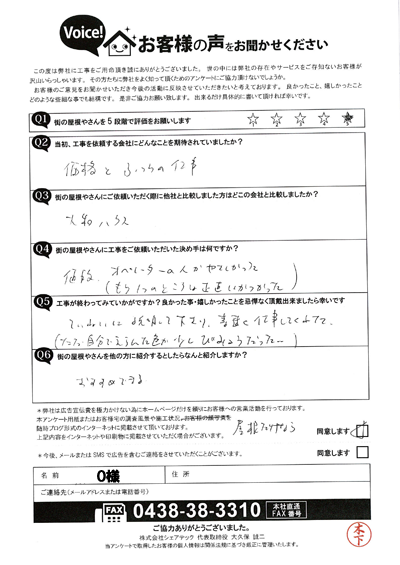 Voice! お客様の声をお聞かせください
この度は弊社に工事をご用命頂き誠にありがとうございました。世の中には弊社の存在やサービスをご存知ないお客様が
沢山いらっしゃいます。その方たちに弊社をよく知って頂くためのアンケートにご協力頂けないでしょうか。
お客様のご意見をお聞かせいただき今後の活動に反映させていただきたいと考えております。良かったこと、嬉しかったこと
どのような些細な事でも結構です。是非ご協力お願い致します。出来るだけ具体的に書いて頂ければ幸いです。
Q1 街の屋根やさんを5段階で評価をお願いします ☆ ☆ ☆ ☆ ★
Q2 当初、工事を依頼する会社にどんなことを期待されていましたか?
価格と ふつうの仕事
Q3 街の屋根やさんにご依頼いただく際に他社と比較しました方はどこの会社と比較しましたか?
大和ハウス
Q4 街の屋根やさんに工事をご依頼いただいた決め手は何ですか?
価格 オペレーターの人がやさしかった
(もう1つのところは正直いかつかった)
Q5 工事が終わってみていかがですか?良かった事・嬉しかったことを忌憚なく頂戴出来ましたら幸いです
ていねいに説明して下さり、
(ただ、自分でえらんだ色が少し
Q6 街の屋根やさんを他の方に紹介するとしたらなんと紹介しますか?
おすすめできる
*弊社は広告宣伝費を極力かけない為にホームページだけを頼りにお客様への営業活動を行っております。
本アンケート用紙またはお客様宅の調査風景や施工状況、お客様の顔写真を
随時ブログ形式のインターネットに掲載させて頂いております。
上記内容をインターネットや印刷物に掲載させていただく場合がございます。 同意します
*今後、メールまたはSMSで広告を含むご連絡をさせていただくことがございます。 同意します
名前 O様 住所
ご連絡先(メールアドレスまたは電話番号)
FAX 0438-38-3310 本社直通 FAX番号
ご協力ありがとうございました。
株式会社シェアテック 代表取締役 大久保 誠二
当アンケートで取得したお客様の個人情報は関係法規に基づき厳正に管理いたします。
木下